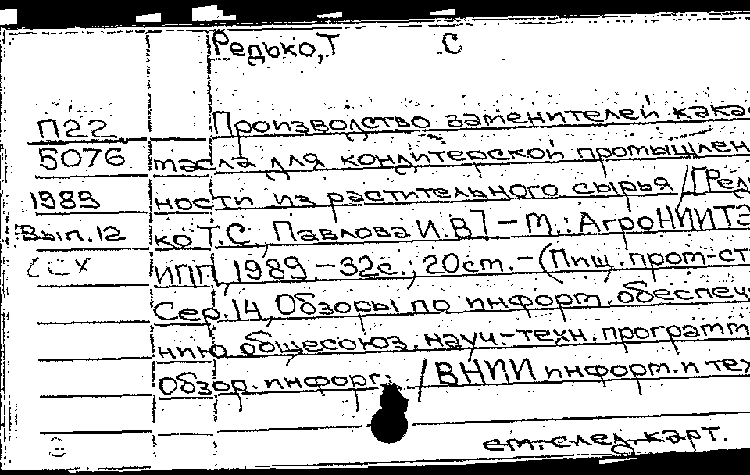 Редько, Т С
П22
5076
1989
Вып.12
Производство заменителей кака
масла для кондитерской промышлен
ности из растительного сырья /Редь
ко Т.С, Павлова И.В/ – М.: АгроНИИТЭ
ИПП, 1989. – 32с.; 20см. – (Пищ. пром-ст
Сер. 14, Обзоры по информ. обеспече
нию общесоюз. науч.-техн. программ
Обзор. информ. /ВНИИ информ. и тех
см. след. карт.